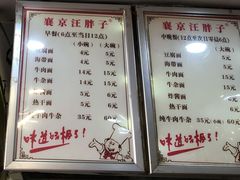 襄京汪胖子
早餐(6点至当日12点)
(小碗) (大碗)
豆腐面 4元 5元
海带面 4元 5元
牛肉面 14元 15元
牛杂面 14元 15元
素面 5元
热干面 6元
牛肉牛杂 35元 60元
味道好极了!
襄京汪胖子
中晚餐(12点至次日零点6点)
(大碗)
豆腐面 5元
海带面 5元
牛肉面 15元
牛杂面 15元
炸酱面 6元
素面 5元
热干面 6元
纯牛肉牛杂 35元(小) 60元
味道好极了!